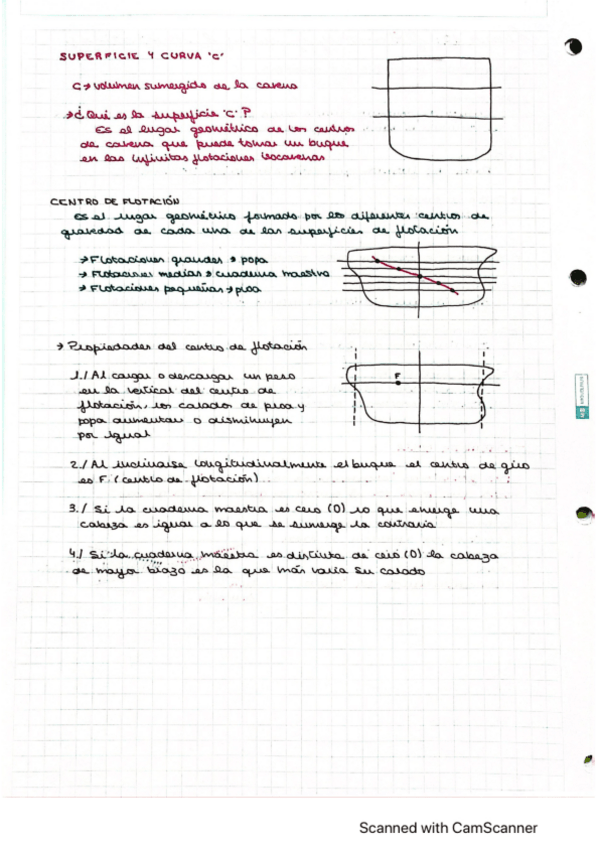 SUPERFICIE Y CURVA "C"
C → volumen sumergido de la carena
→ ¿Qué es la superficie "C"?
Es el lugar geométrico de los centros
de carena que puede tomar un buque
en las infinitas flotaciones isocarenas
CENTRO DE FLOTACIÓN
Es el lugar geométrico formado por los diferentes centros de
gravedad de cada una de las superficies de flotación
→ Flotaciones grandes → popa
→ Flotaciones medias → cuaderna maestra
→ Flotaciones pequeñas → proa
→ Propiedades del centro de flotación
1./ Al cargar o descargar un peso
en la vertical del centro de
flotación, los calados de proa y
popa aumentan o disminuyen
por igual
F
2./ Al inclinarse longitudinalmente el buque el centro de giro
es F (centro de flotación)
3./ Si la cuaderna maestra es cero (0) lo que emerge una
cabeza es igual a lo que se sumerge la contraria
4./ Si la cuaderna maestra es distinta de cero (0) la cabeza
de mayor brazo es la que más varía su calado
Scanned with CamScanner